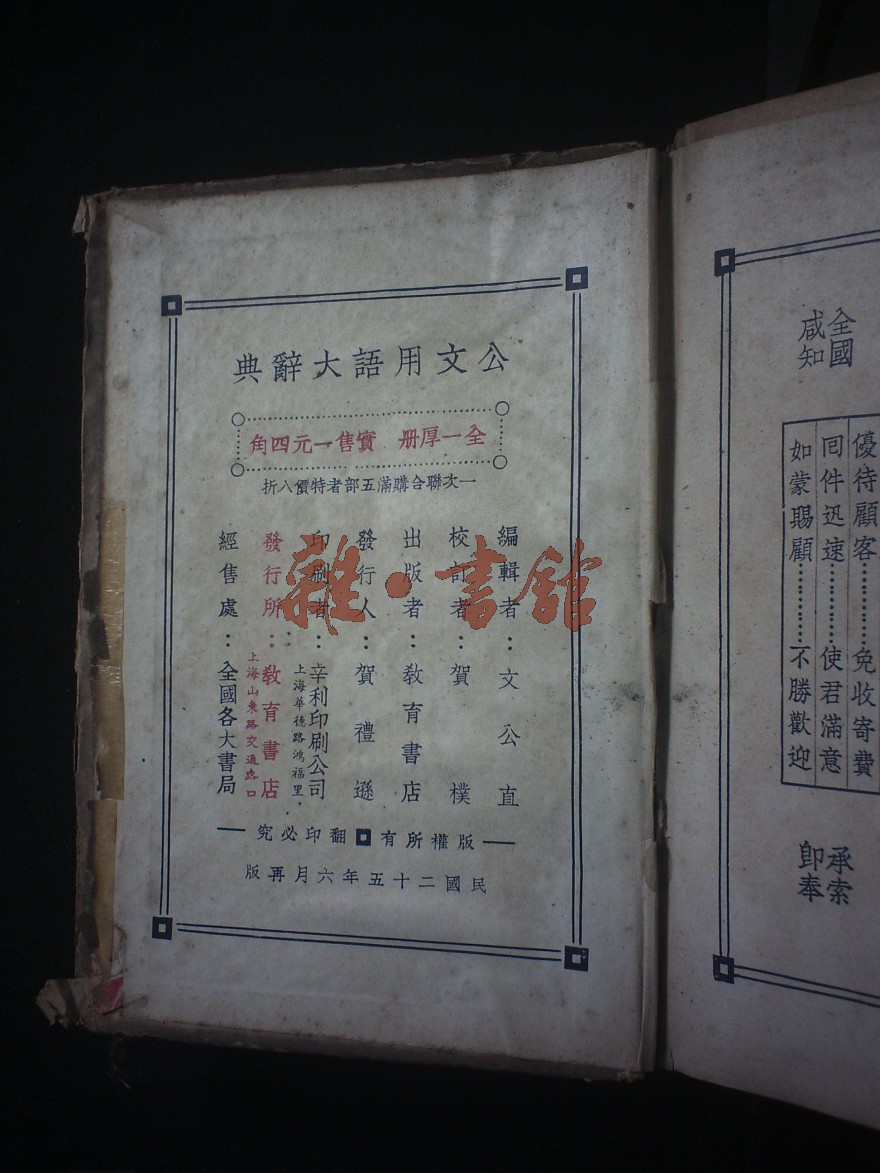 公文用語大辭典
全一厚册 實售一元四角
一次聯合購滿五部者特價八折
編輯者：文公直
校訂者：賀樸
出版者：敎育書店
發行人：賀禮遜
印刷者：辛利印刷公司
上海華德路鴻福里
發行所：敎育書店
上海山東路交通路口
經售處：全國各大書局
版權所有 翻印必究
民國二十五年六月再版
全國
咸知
優待顧客…………免收寄費
囘件迅速…………使君滿意
如蒙賜顧…………不勝歡迎
承索
卽奉
雜·書館